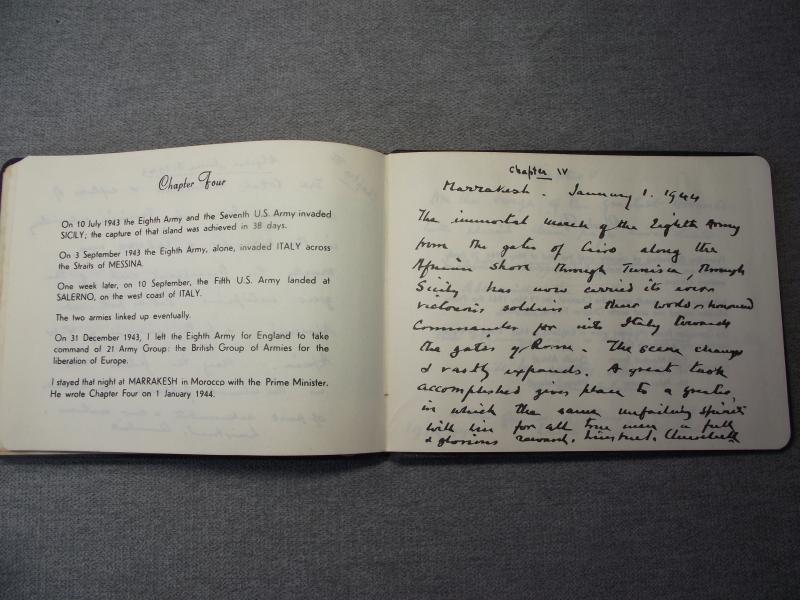 Chapter Four
On 10 July 1943 the Eighth Army and the Seventh U.S. Army invaded
SICILY; the capture of that island was achieved in 38 days.
On 3 September 1943 the Eighth Army, alone, invaded ITALY across
the Straits of MESSINA.
One week later, on 10 September, the Fifth U.S. Army landed at
SALERNO, on the west coast of ITALY.
The two armies linked up eventually.
On 31 December 1943, I left the Eighth Army for England to take
command of 21 Army Group: the British Group of Armies for the
liberation of Europe.
I stayed that night at MARRAKESH in Morocco with the Prime Minister.
He wrote Chapter Four on 1 January 1944.
Chapter IV
Marrakesh. January 1. 1944
The immortal march of the Eighth Army
from the gates of Cairo along the
African shore through Tunisia, through
Sicily has now carried its ever
victorious soldiers & their world-honoured
Commander far into Italy towards
the gates of Rome. The scene changes
& vastly expands. A great task
accomplished gives place to a greater,
in which the same unfailing spirit
will win for all true men a full
& glorious reward. Winston S. Churchill